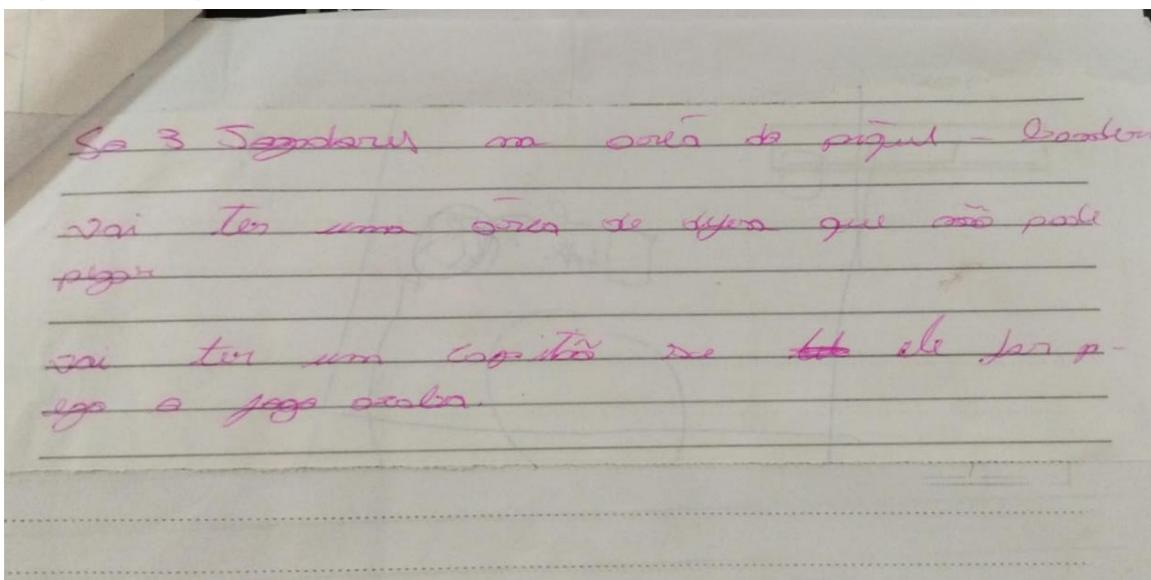 So 3 Jogadores na área do piqui - Bander
vai Ter uma área de defesa que não pode
pegar
vai ter um capitão se ele for p-
ego o jogo acaba.